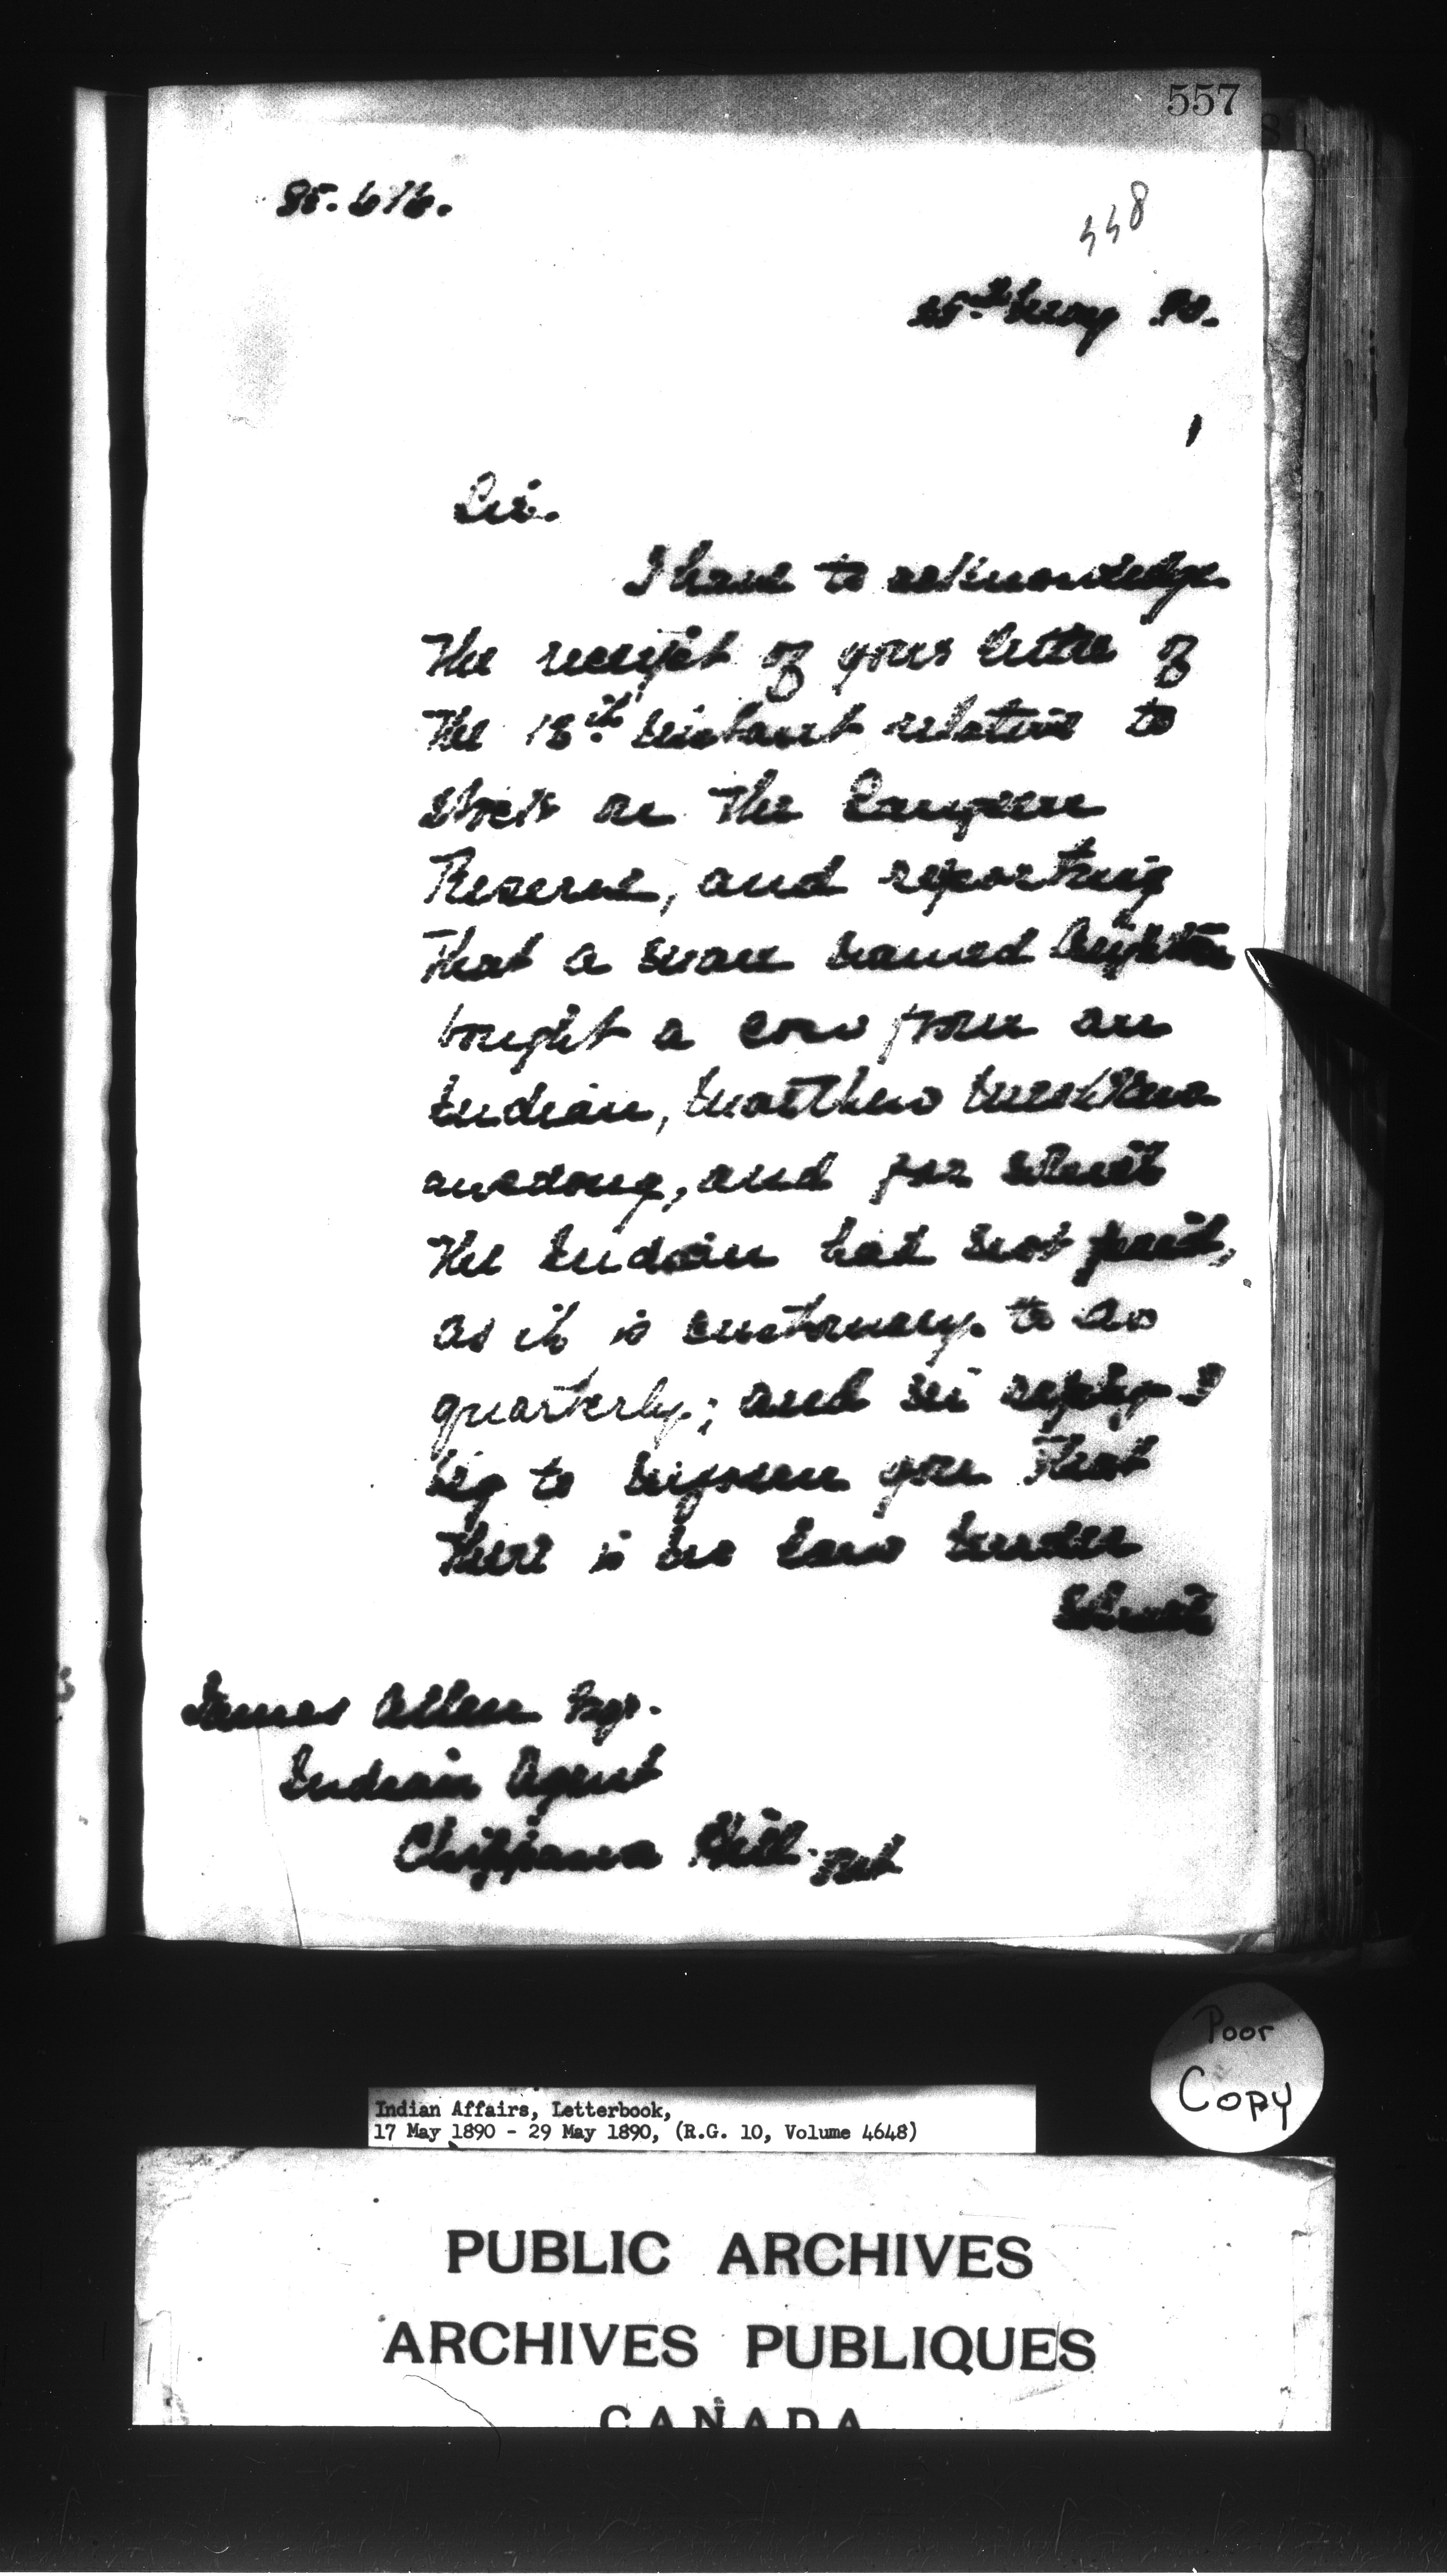 557
448
May 90.
Sir.
I have to acknowledge
the receipt of your letter of
the 18th instant relative to
stock on the Saugeen
Reserve, and reporting
that a man named
bought a cow from an
Indian, Matthew
and for which
the Indian had not paid,
as it is customary to do
quarterly; and in reply I
beg to inform you that
there is no law under
which
James Allen Esq.
Indian Agent
Chippawa Hill Ont
Poor
Copy
Indian Affairs, Letterbook,
17 May 1890 - 29 May 1890, (R.G. 10, Volume 4648)
PUBLIC ARCHIVES
ARCHIVES PUBLIQUES
CANADA